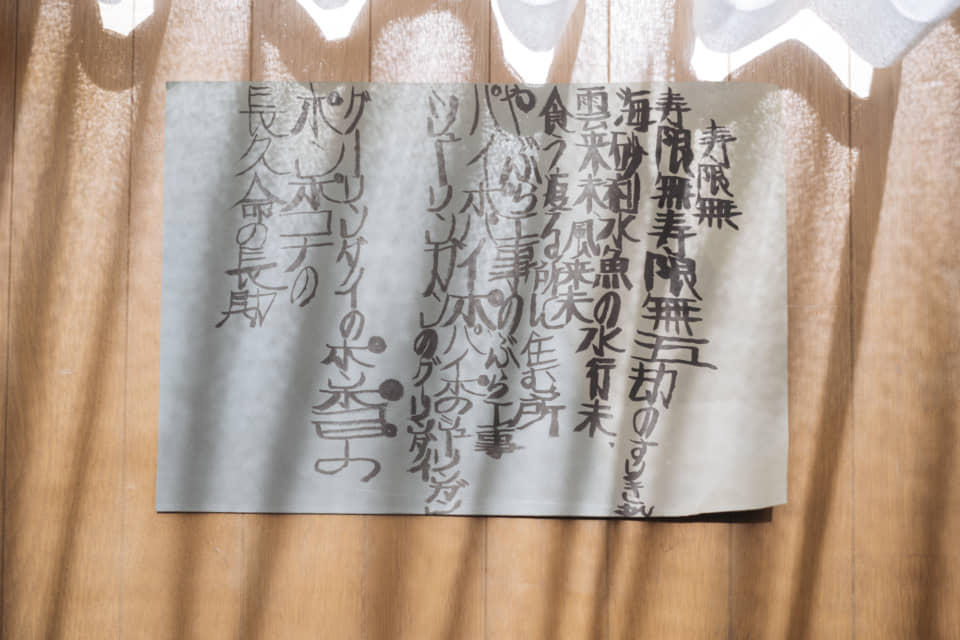 寿限無
寿限無寿限無五劫のすりきれ
海砂利水魚の水行末、
雲来末風来末
食う寝る所に住む所
やぶら工事のぶら工事
パイポパイポパイポのシューリンガン
シューリンガンのグーリンダイ
グーリンダイのポンポ
コピーの
ポンポコナの
長久命の長助